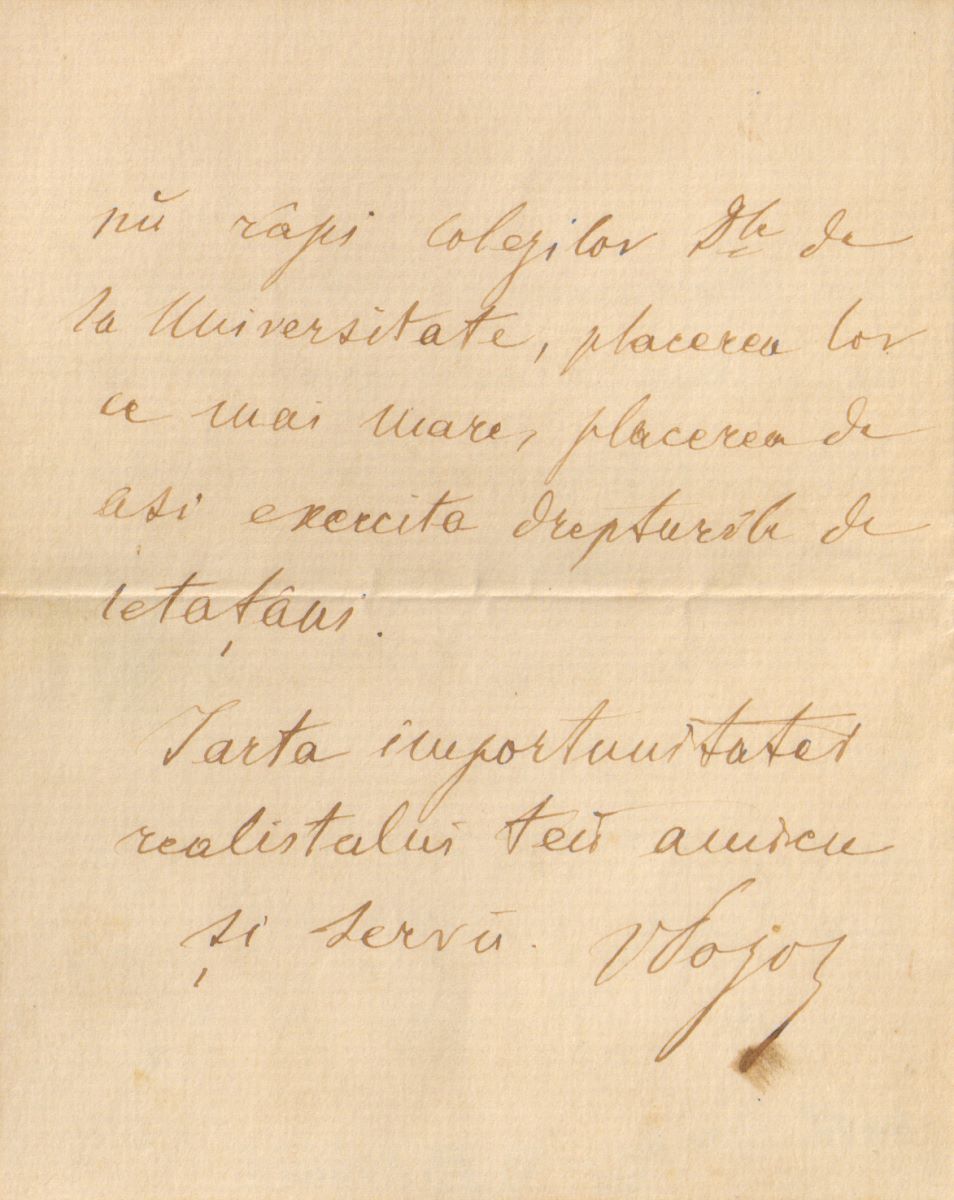 nŭ râpi colegilor Dle de
la Universitate, placerea lor
ce mai mare, placerea de
asi exercita drepturile de
cetațâni.
Iarta importunitatei
realistului teŭ amicu
și servŭ.